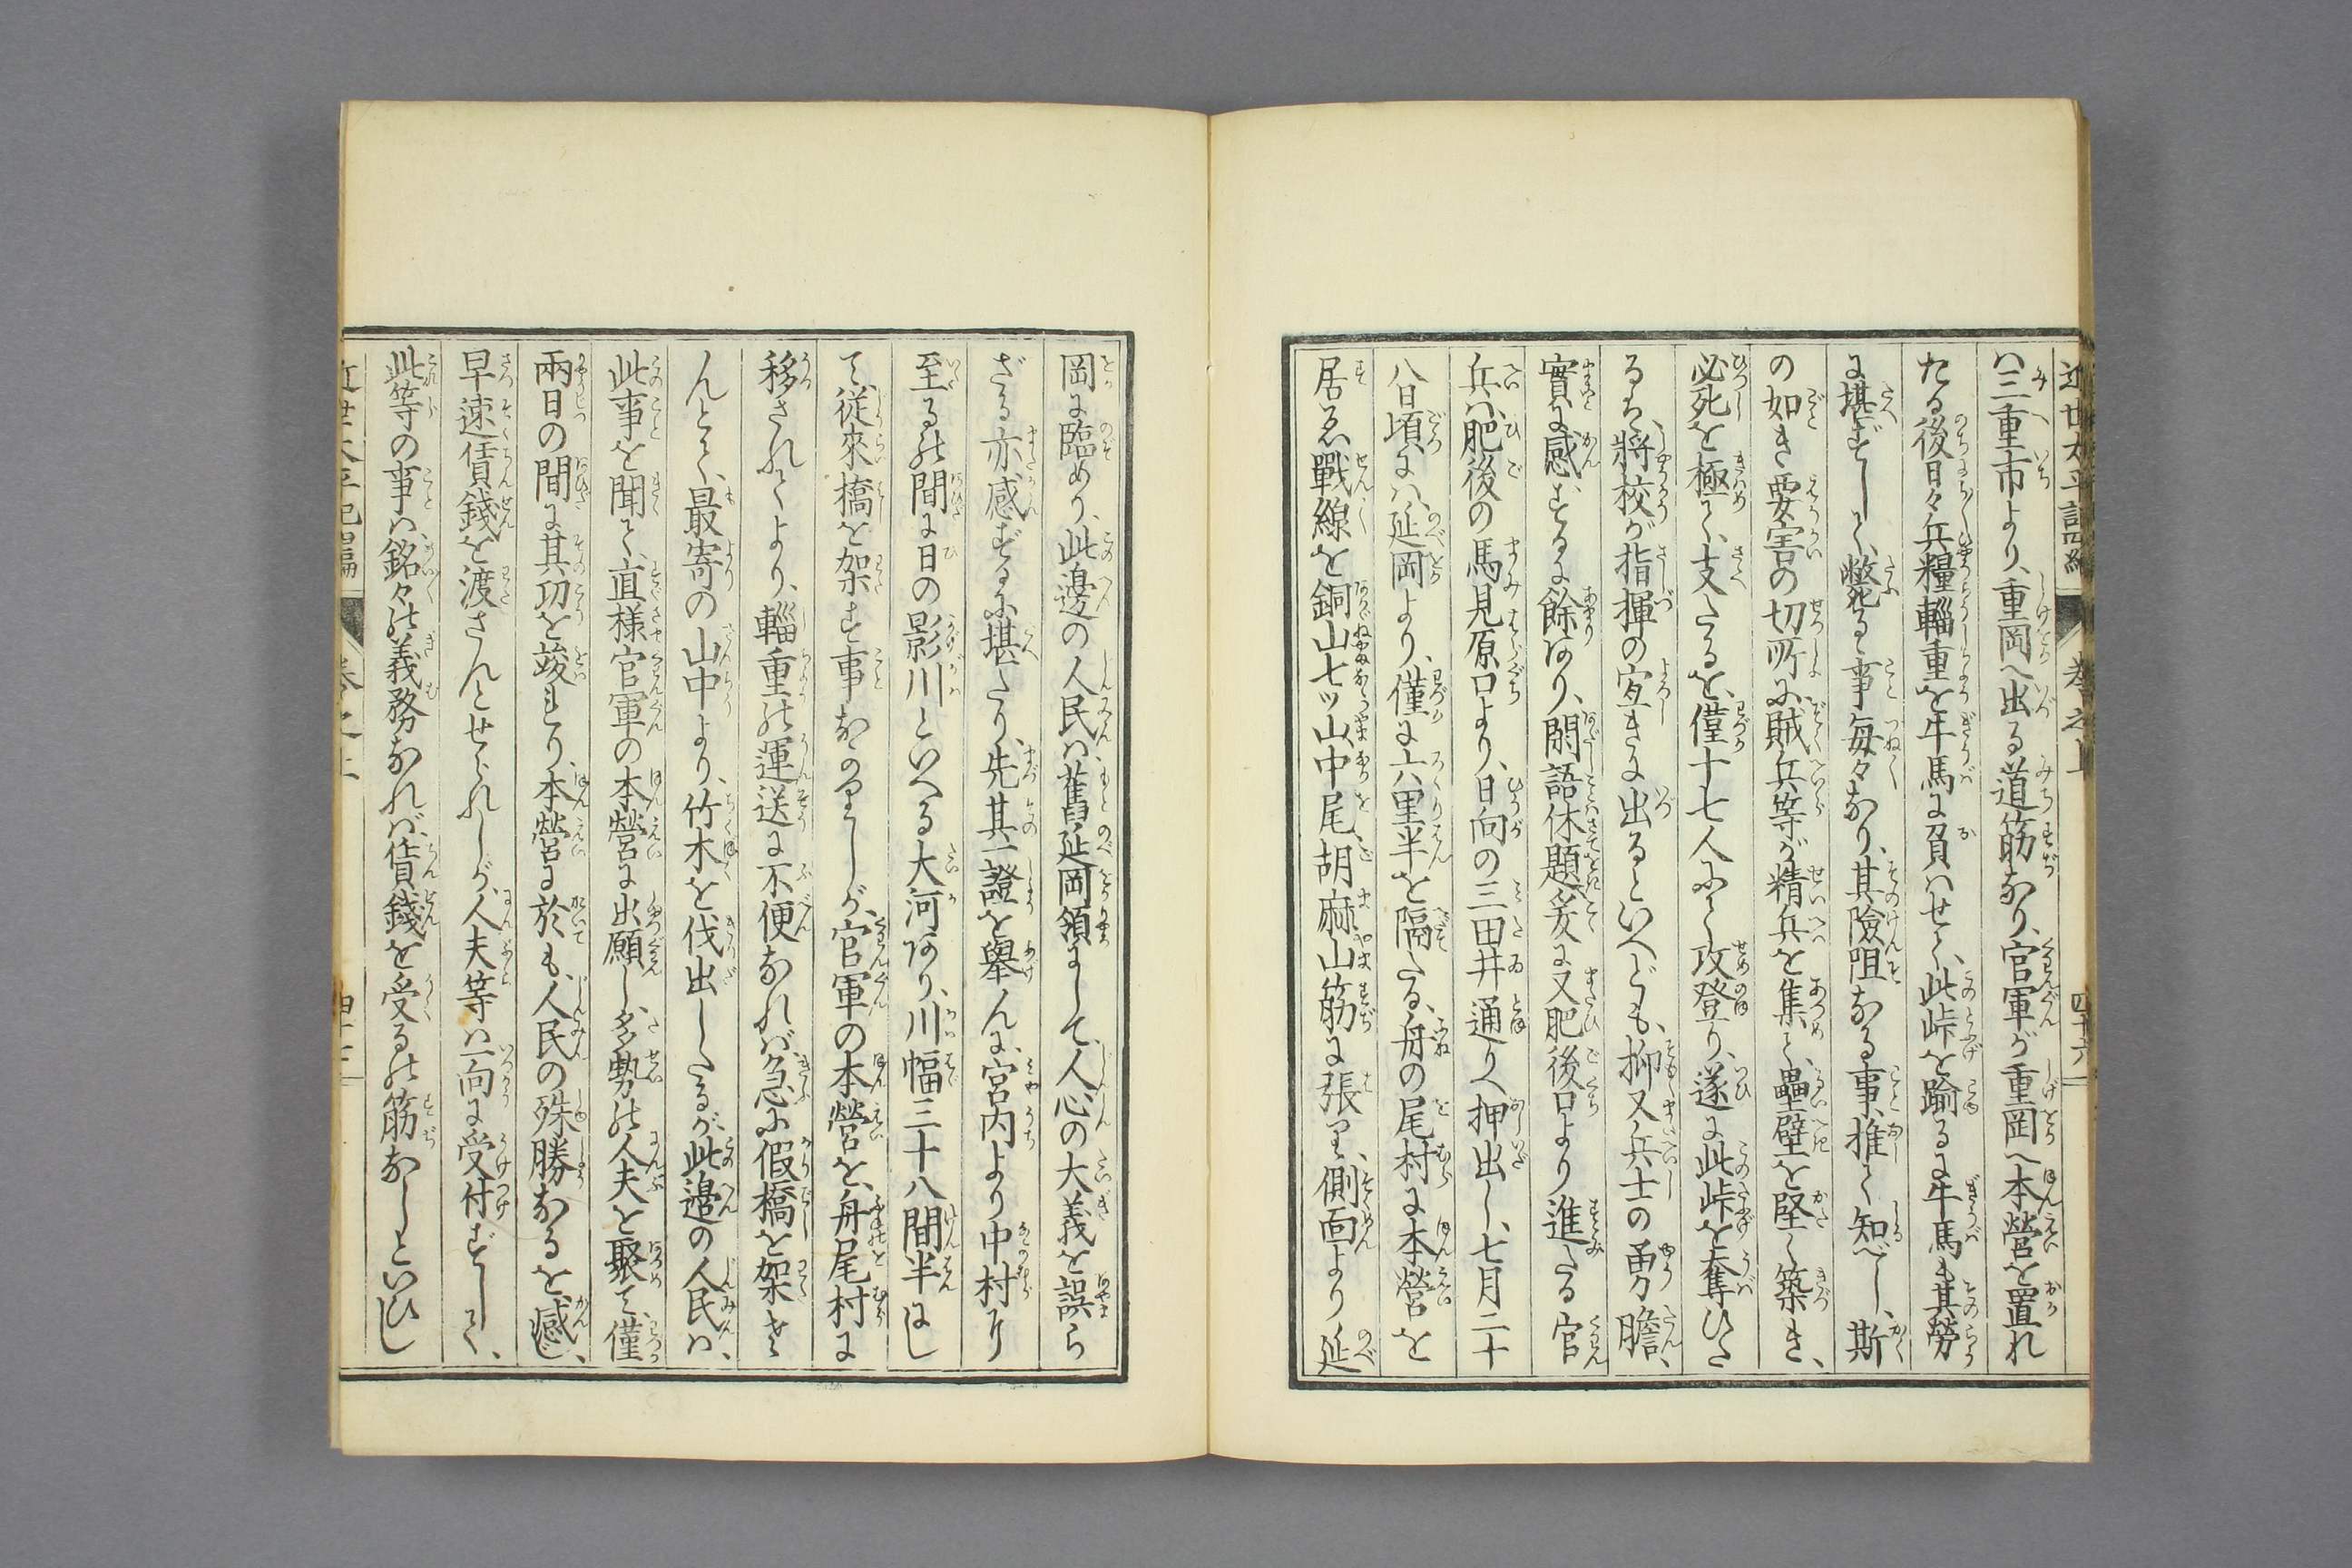 近世太平記編 巻之上 四十六
ハ三重市より、重岡へ出る道筋なり、官軍が重岡へ本營を置れ
たる後日々兵糧輜重を牛馬に負ハせて、此峠を踰るに牛馬も其勞
に堪ずして、斃るゝ事毎々なり、其險阻なる事、推て知べし、斯
の如き要害の切所に賊兵等が精兵を集て、壘壁を堅く築き、
必死を極て、支たるを、僅十七人にて攻登り、遂に此峠を奪ひた
るも、將校が指揮の宜きに出るといへども、抑又兵士の勇膽、
實に感ずるに餘あり、閑語休題爰に又肥後口より進たる官
兵ハ、肥後の馬見原口より、日向の三田井通りへ押出し、七月二十
八日頃にハ、延岡より、僅に六里半を隔たる、舟の尾村に本營を
居ゑ戰線を銅山七ッ山、中尾、胡麻山筋に張り、側面より延
岡に臨めり、此邊の人民ハ、舊延岡領にして、人心の大義を誤ら
ざる亦感ずるに堪たり、先其一證を舉んに、宮内より中村に
至るの間に日の影川といへる大河あり、川幅三十八間半にし
て、従來橋を架す事なかりしが、官軍の本營を、舟尾村に
移されてより、輜重の運送に不便なれバ、急に假橋を架せ
んとて、最寄の山中より、竹木を伐出したるが、此邉の人民ハ、
此事を聞て、直様官軍の本營に出願し、多勢の人夫を聚て、僅
兩日の間に其功を竣はり、本營に於も、人民の殊勝なるを感じ、
早速賃錢を渡さんとせられしが、人夫等ハ一向に受付ずして、
此等の事ハ、銘々の義務なれバ、賃錢を受るの筋なしといひし